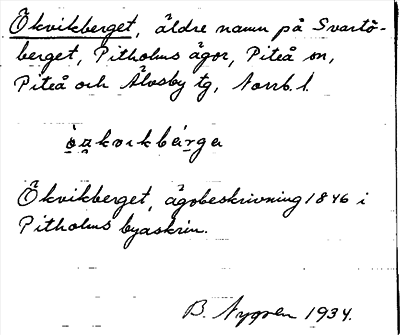 Ökvikberget, äldre namn på Svartö-
berget, Pitholms ägor, Piteå sn,
Piteå och Älvsby tg, Norrb. l.
Ökvikberget, ägobeskrivning 1846 i
Pitholms byaskrin.
B. Nygren 1934.